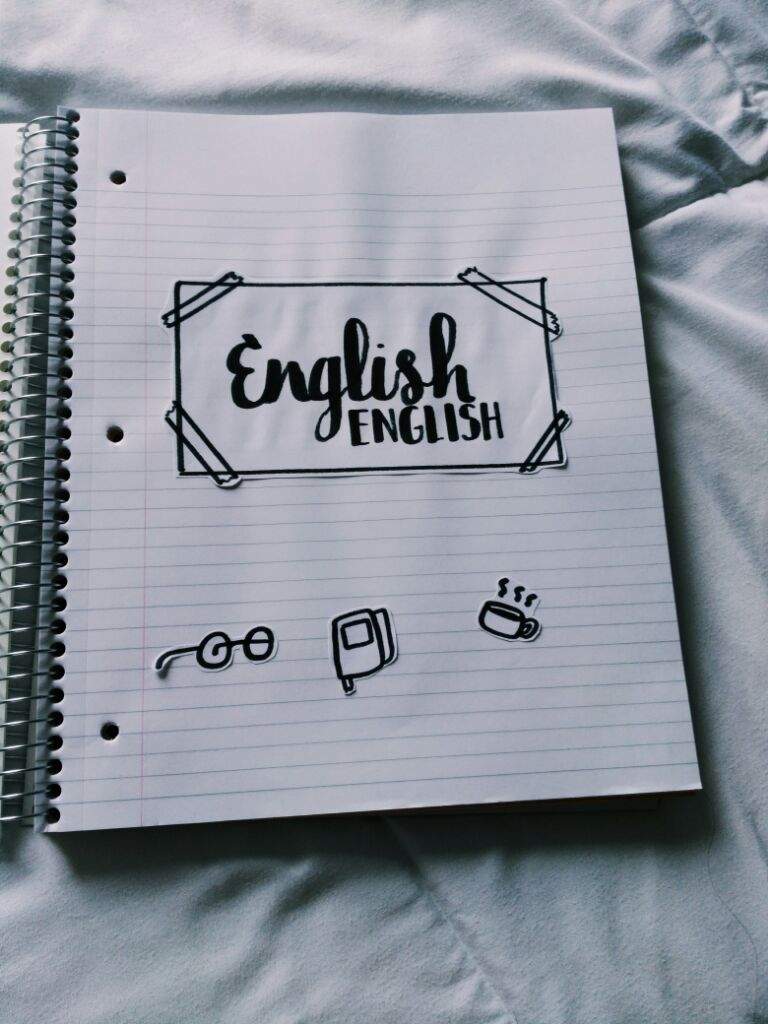 English
ENGLISH